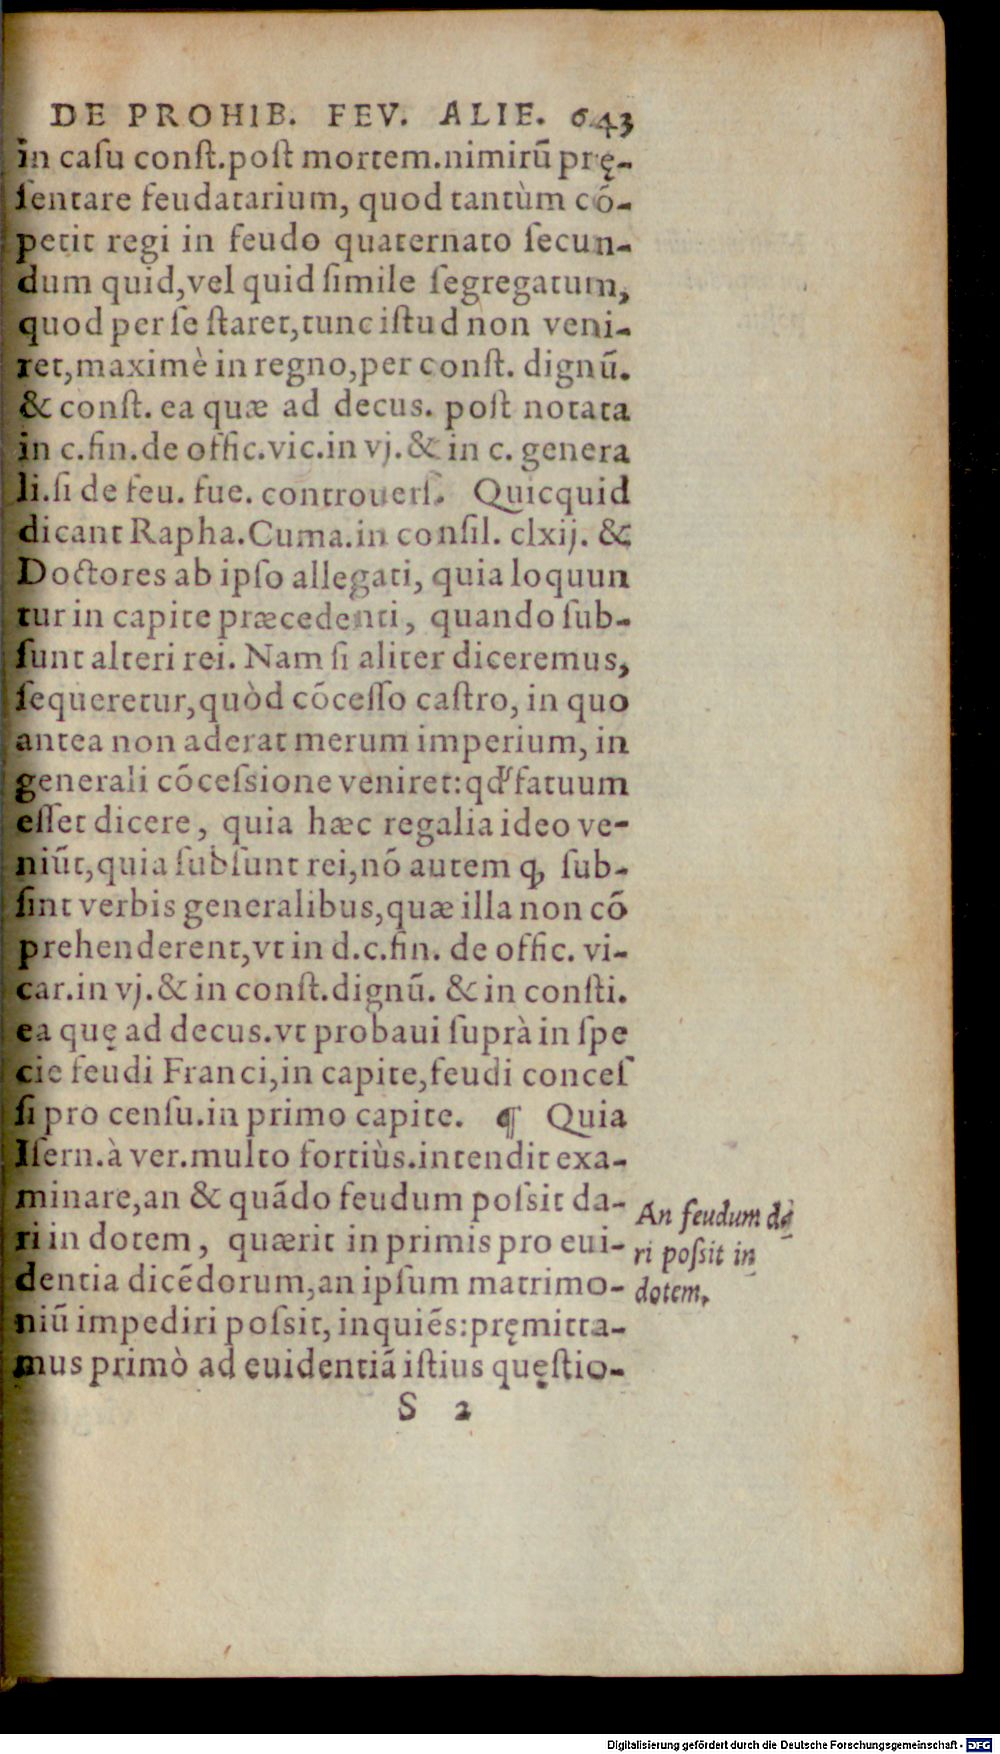 DE PROHIB. FEV. ALIE. 643
in caſu conſt.poſt mortem.nimirũ prę-
ſentare feudatarium, quod tantùm cõ-
petit regi in feudo quaternato ſecun-
dum quid,vel quid ſimile ſegregatum,
quod per ſe ſtaret,tunc iſtud non veni-
ret,maximè in regno,per conſt. dignũ.
& conſt. ea quæ ad decus. poſt notata
in c.fin.de offic.vic.in vj.& in c. genera
li.ſi de feu. fue. controuerſ. Quicquid
dicant Rapha.Cuma.in conſil. clxij. &
Doctores ab ipſo allegati, quia loquun
tur in capite præcedenti, quando ſub-
ſunt alteri rei. Nam ſi aliter diceremus,
ſequeretur,quòd cõceſſo caſtro, in quo
antea non aderat merum imperium, in
generali cõceſsione veniret:qđ fatuum
eſſet dicere, quia hæc regalia ideo ve-
niũt,quia ſubſunt rei,nõ autem ꝙ ſub-
ſint verbis generalibus,quæ illa non cõ
prehenderent,vt in d.c.fin. de offic. vi-
car.in vj.& in conſt.dignũ. & in conſti.
ea quę ad decus.vt probaui ſuprà in ſpe
cie feudi Franci,in capite,feudi conceſ
ſi pro cenſu.in primo capite. ¶ Quia
Iſern.à ver.multo fortiùs.intendit exa-
minare,an & quãdo feudum poſsit da-
ri in dotem, quærit in primis pro eui-
dentia dicẽdorum,an ipſum matrimo-
niũ impediri poſsit, inquiẽs:pręmitta-
mus primò ad euidentiã iſtius quęſtio-
An feudum da
ri poſsit in
dotem.
S 2
Digitalisierung gefördert durch die Deutsche Forschungsgemeinschaft - DFG